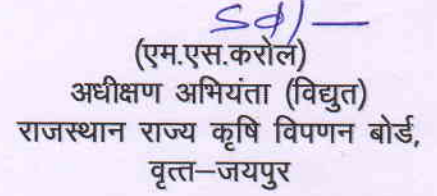 Sd/—
(एम.एस.करोल)
अधीक्षण अभियंता (विद्युत)
राजस्थान राज्य कृषि विपणन बोर्ड,
वृत्त–जयपुर